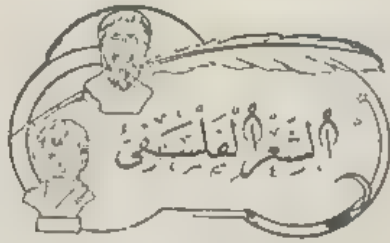 الشعر الفلسفي